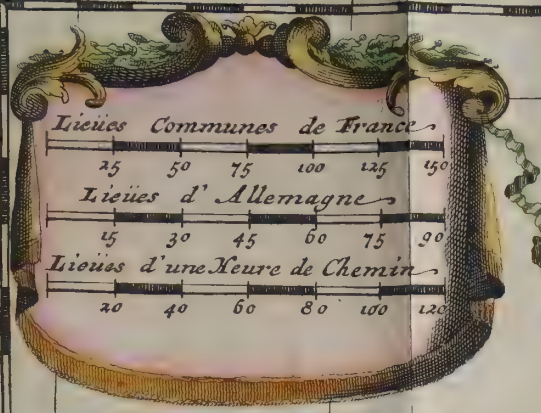 Lieües Communes de France
25 50 75 100 125 150
Lieües d'Allemagne
15 30 45 60 75 90
Lieües d'une Heure de Chemin
20 40 60 80 100 120